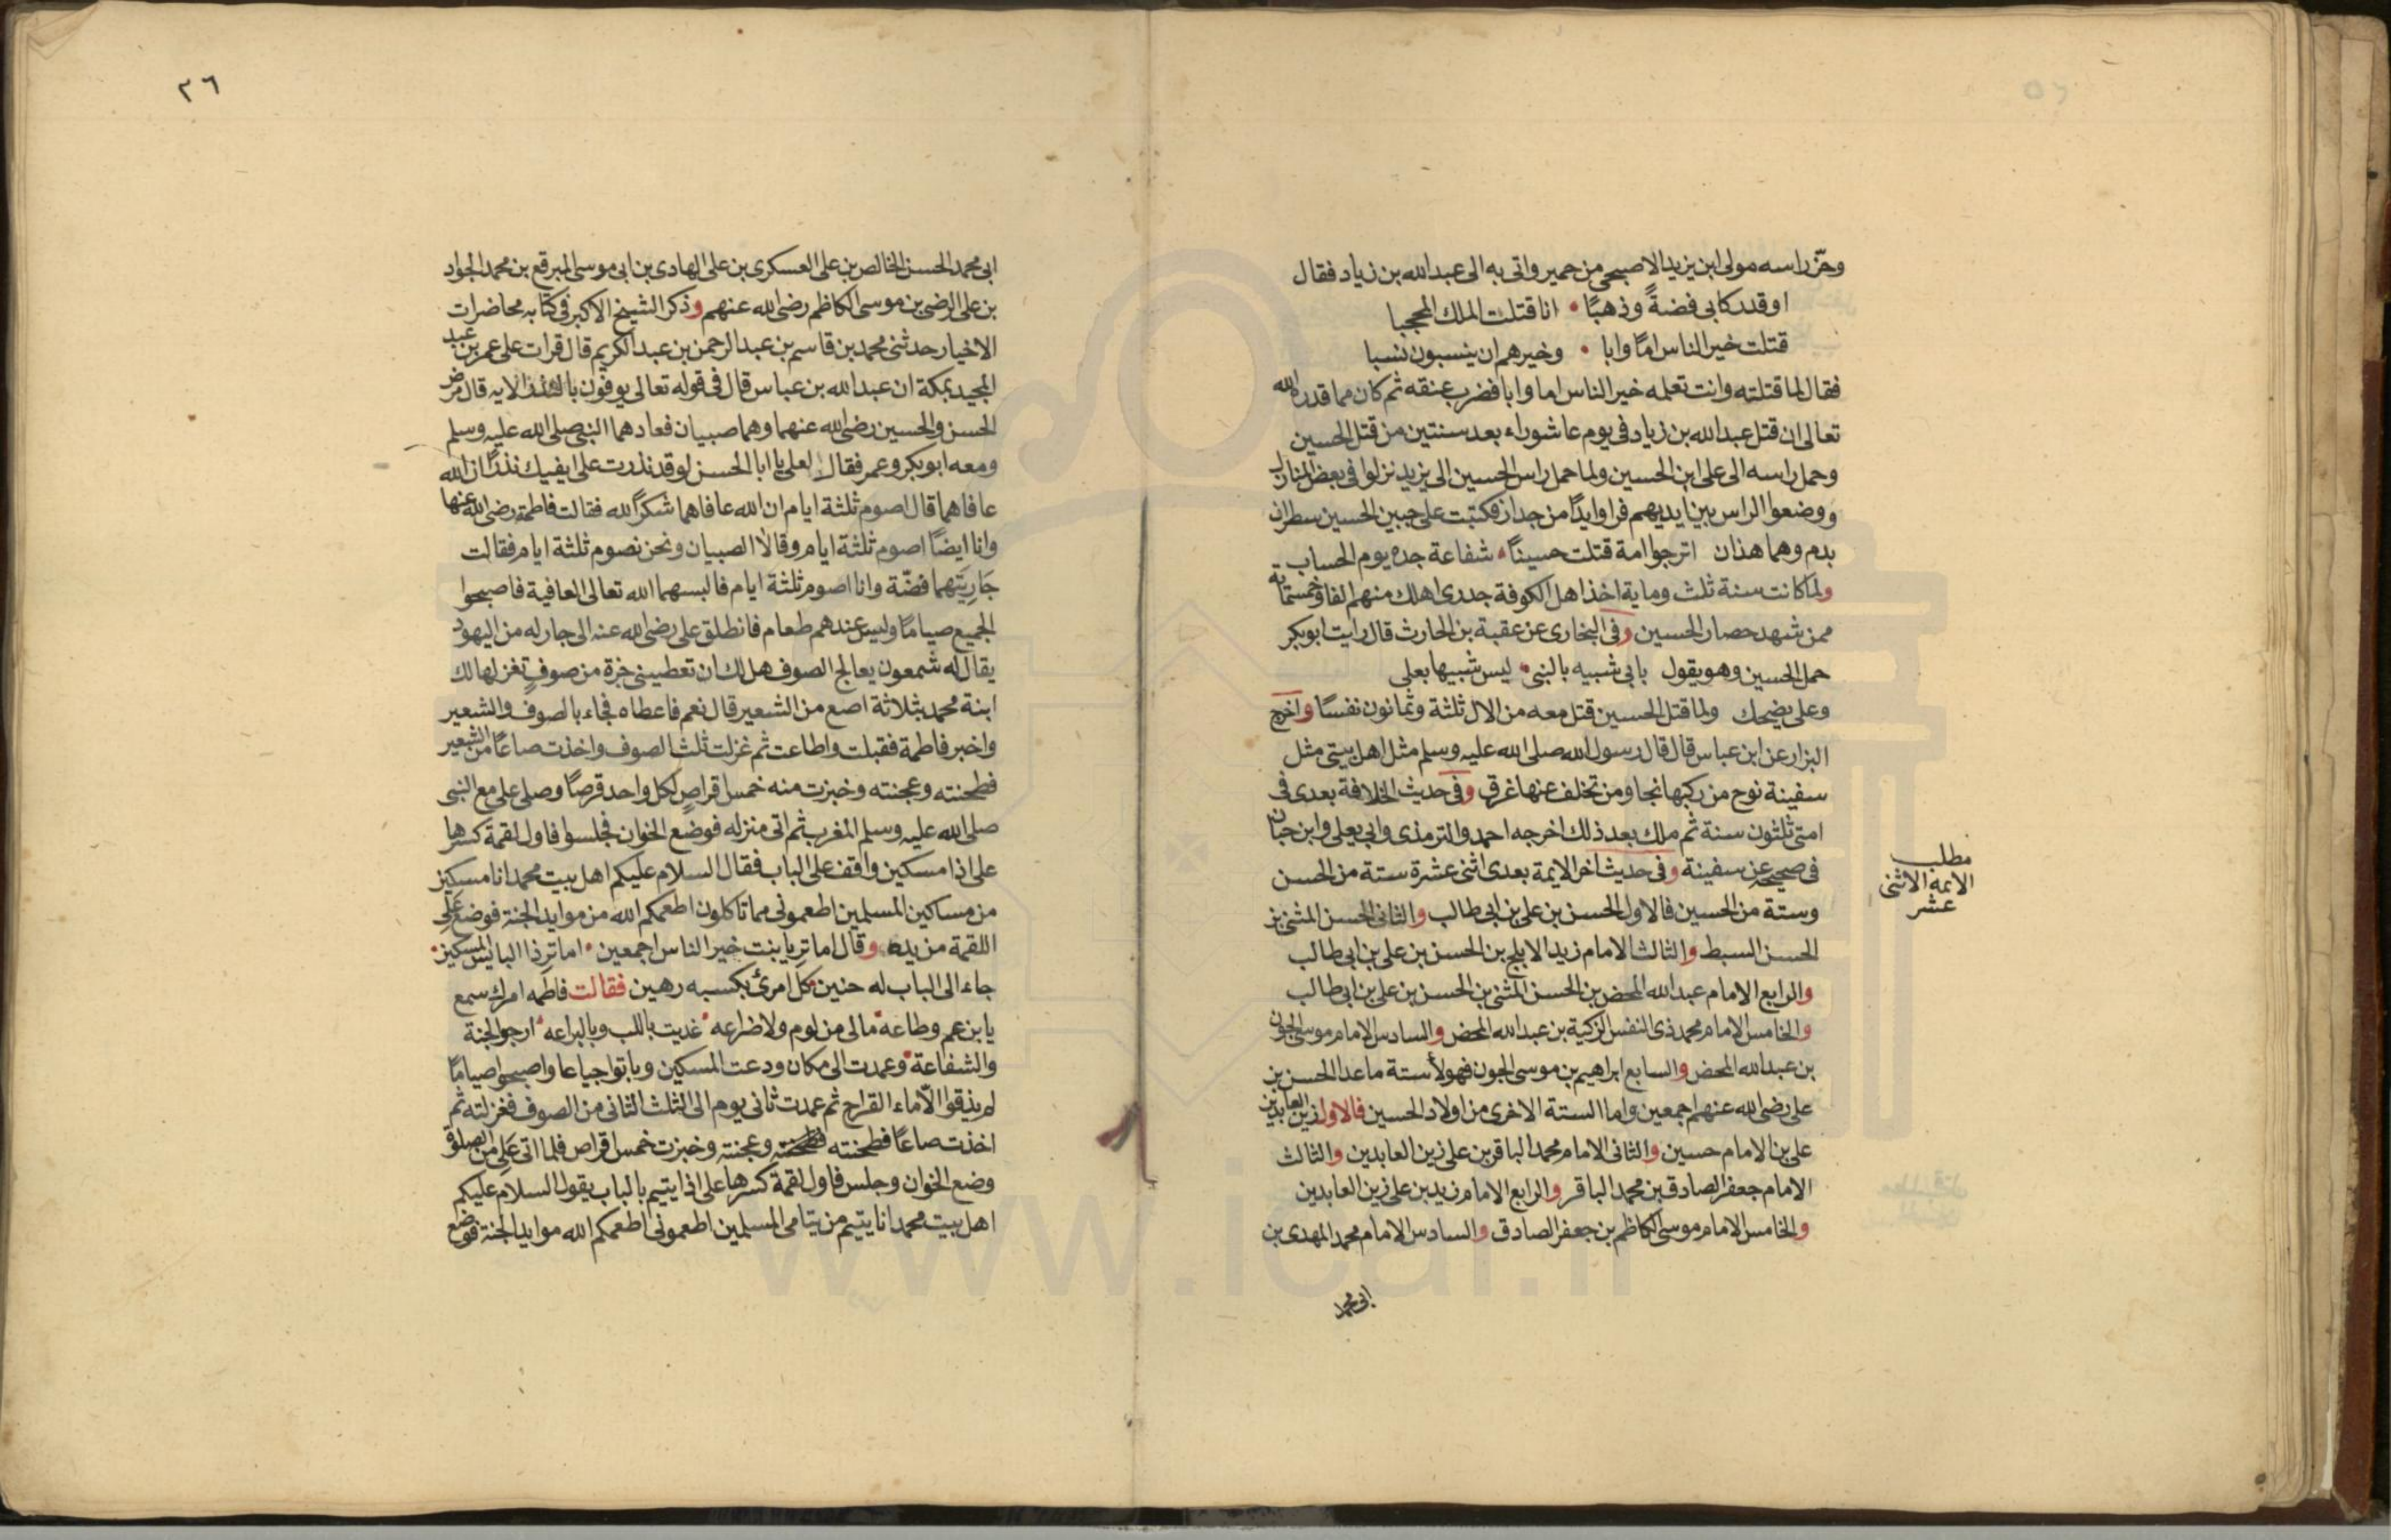 وحزّ راسه مولى ابن يزيد الاصبحي من حمير واتى به الى عبدالله بن زياد فقال
اوقد ركابي فضةً وذهبًا • انا قتلت الملك المحجبا
قتلت خير الناس امًا وابا • وخيرهم ان ينسبون نسبا
فقال لما قتلته وانت تعلمه خير الناس اما وابا فضرب عنقه ثم كان مما قدره الله
تعالى ان قتل عبدالله بن زياد في يوم عاشوراء بعد سنتين من قتل الحسين
وحمل راسه الى على ابن الحسين ولما حمل راس الحسين الى يزيد نزلوا في بعض المنازل
ووضعوا الراس بين ايديهم فراوا يدًا من جدار فكتبت على جبين الحسين سطران
بدم وهما هذان اترجوا امة قتلت حسينًا • شفاعة جده يوم الحساب
ولما كانت سنة ثلث وماية اخذ اهل الكوفة جدرى اهلك منهم الفا وخمستماية
ممن شهد حصار الحسين وفى البخارى عن عقبة بن الحارث قال رايت ابو بكر
حمل الحسين وهو يقول بابى شبيه بالنبى • ليس شبيها بعلى
وعلى يضحك ولما قتل الحسين قتل معه من الال ثلثة وثمانون نفسًا واخرج
البزار عن ابن عباس قال قال رسول الله صلى الله عليه وسلم مثل اهل بيتى مثل
سفينة نوح من ركبها نجا ومن تخلف عنها غرق وفى حديث الخلافة بعدى فى
امتى ثلثون سنة ثم ملك بعد ذلك اخرجه احمد والترمذى وابى يعلى وابن حبان
فى صحيحه عن سفينة وفى حديث اخر الايمة بعدى اثنى عشرة ستة من الحسن
وستة من الحسين فالاول الحسن بن على بن ابى طالب والثانى الحسن المثنى بن
الحسن السبط والثالث الامام زيد الابلج بن الحسن بن على بن ابى طالب
والرابع الامام عبدالله المحض بن الحسن المثنى بن الحسن بن على بن ابى طالب
والخامس الامام محمد ذى النفس الزكية بن عبدالله المحض والسادس الامام موسى الجون
بن عبدالله المحض والسابع ابراهيم بن موسى الجون فهولأ ستة ما عدا الحسن بن
على رضى الله عنهم اجمعين واما الستة الاخرى من اولاد الحسين فالاول زين العابدين
على بن الامام حسين والثانى الامام محمد الباقر بن على زين العابدين والثالث
الامام جعفر الصادق بن محمد الباقر والرابع الامام زيد بن على زين العابدين
والخامس الامام موسى الكاظم بن جعفر الصادق والسادس الامام محمد المهدى بن
ابى محمد
مطلب
الايمه الاثنى
عشر
٢٦
ابى محمد الحسن الخالص بن على العسكرى بن على الهادى بن ابى موسى المبرقع بن محمد الجواد
بن على الرضى بن موسى الكاظم رضى الله عنهم وذكر الشيخ الاكبر فى كتابه محاضرات
الاخيار حدثنى محمد بن قاسم بن عبد الرحمن بن عبد الكريم قال قرات على عمر بن عبد
المجيد بمكة ان عبدالله بن عباس قال فى قوله تعالى يوفون بالنذر الايه قال مرض
الحسن والحسين رضى الله عنهما وهما صبيان فعادهما النبى صلى الله عليه وسلم
ومعه ابو بكر وعمر فقال لعلى يا ابا الحسن لو قد نذرت على ابنيك نذرًا ان الله
عافاهما قال اصوم ثلثة ايام ان الله عافاهما شكرًا لله فقالت فاطمة رضى الله عنها
وانا ايضًا اصوم ثلثة ايام وقالا الصبيان ونحن نصوم ثلثة ايام فقالت
جَارِيَتَهما فضّة وانا اصوم ثلثة ايام فالبسهما الله تعالى العافية فاصبحوا
الجميع صيامًا وليس عندهم طعام فانطلق على رضى الله عنه الى جار له من اليهود
يقال له شمعون يعالج الصوف هل لك ان تعطينى جزة من صوفٍ تغزلها لك
ابنة محمد بثلاثة اصع من الشعير قال نعم فاعطاه فجاء بالصوف والشعير
واخبر فاطمة فقبلت واطاعت ثم غزلت ثلث الصوف واخذت صاعًا من الشعير
فطحنته وعجنته وخبزت منه خمس اقراصٍ لكل واحد قرصًا وصلى على مع النبى
صلى الله عليه وسلم المغرب ثم اتى منزله فوضع الخوان فجلسوا فاول لقمة كسرها
على اذا مسكين واقف على الباب فقال السلام عليكم اهل بيت محمد انا مسكين
من مساكين المسلمين اطعمونى مما تاكلون اطعمكم الله من موايد الجنة فوضع على
اللقمة من يده وقال اما ترِ يا بنت خير الناس اجمعين • اما ترِ ذا البايس المسكين •
جاء الى الباب له حنين • كل امرئ بكسبه رهين فقالت فاطمه امرك سمع
يا بن عم وطاعه • مالى من لوم ولا ضراعه • غديت باللب وبالبراعه • ارجوا الجنة
والشفاعة • وعمدت الى مكان ودعت المسكين وباتوا جياعا واصبحوا صيامًا
لم يذقوا الّا ماء القراح ثم عمدت ثانى يوم الى الثلث الثانى من الصوف فغزلته ثم
اخذت صاعًا فطحنته وعجنته وخبزت خمس اقراص فلما اتى على من الصلوة
وضع الخوان وجلس فاول لقمة كسرها على اذا يتيم بالباب يقول السلام عليكم
اهل بيت محمد انا يتيم من يتامى المسلمين اطعمونى اطعمكم الله موايد الجنة فوضع
www.ical.ir